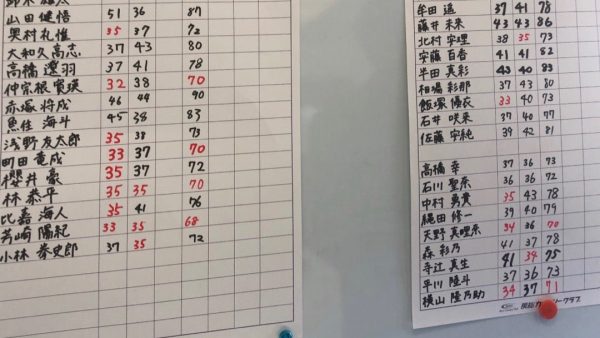 山田 健悟 51 36 87
奥村 礼惟 35 37 72
大和久 高志 37 43 80
高橋 遼羽 37 41 78
仲宗根 寛瑛 32 38 70
赤塚 将成 46 44 90
魚住 海斗 45 38 83
浅野 友太郎 35 38 73
町田 竜成 33 37 70
櫻井 豪 35 37 72
林 恭平 35 35 70
比嘉 海人 35 41 76
芳崎 陽紀 33 35 68
小林 拳史郎 37 35 72
牟田 遥 37 41 78
藤井 未来 43 43 86
北村 宇理 38 35 73
安藤 百香 41 41 82
半田 真彩 43 40 83
相場 彩那 37 43 80
飯塚 優衣 33 40 73
石井 咲来 37 40 77
佐藤 宇純 39 42 81
高橋 幸 37 36 73
石川 聖奈 36 36 72
中村 勇貴 35 43 78
縄田 修一 39 40 79
天野 真理奈 34 36 70
森 彩乃 41 37 78
寺辻 真生 41 34 75
平川 陸斗 37 36 73
横山 隆乃助 34 37 71